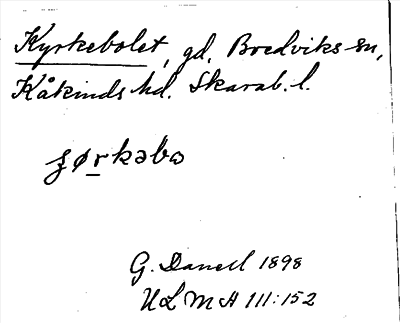 Kyrkebolet, gd, Bredviks sn,
Kåkinds hd. Skarab. l.
ʒørkəbω
G. Danell 1898
ULMA 111:152